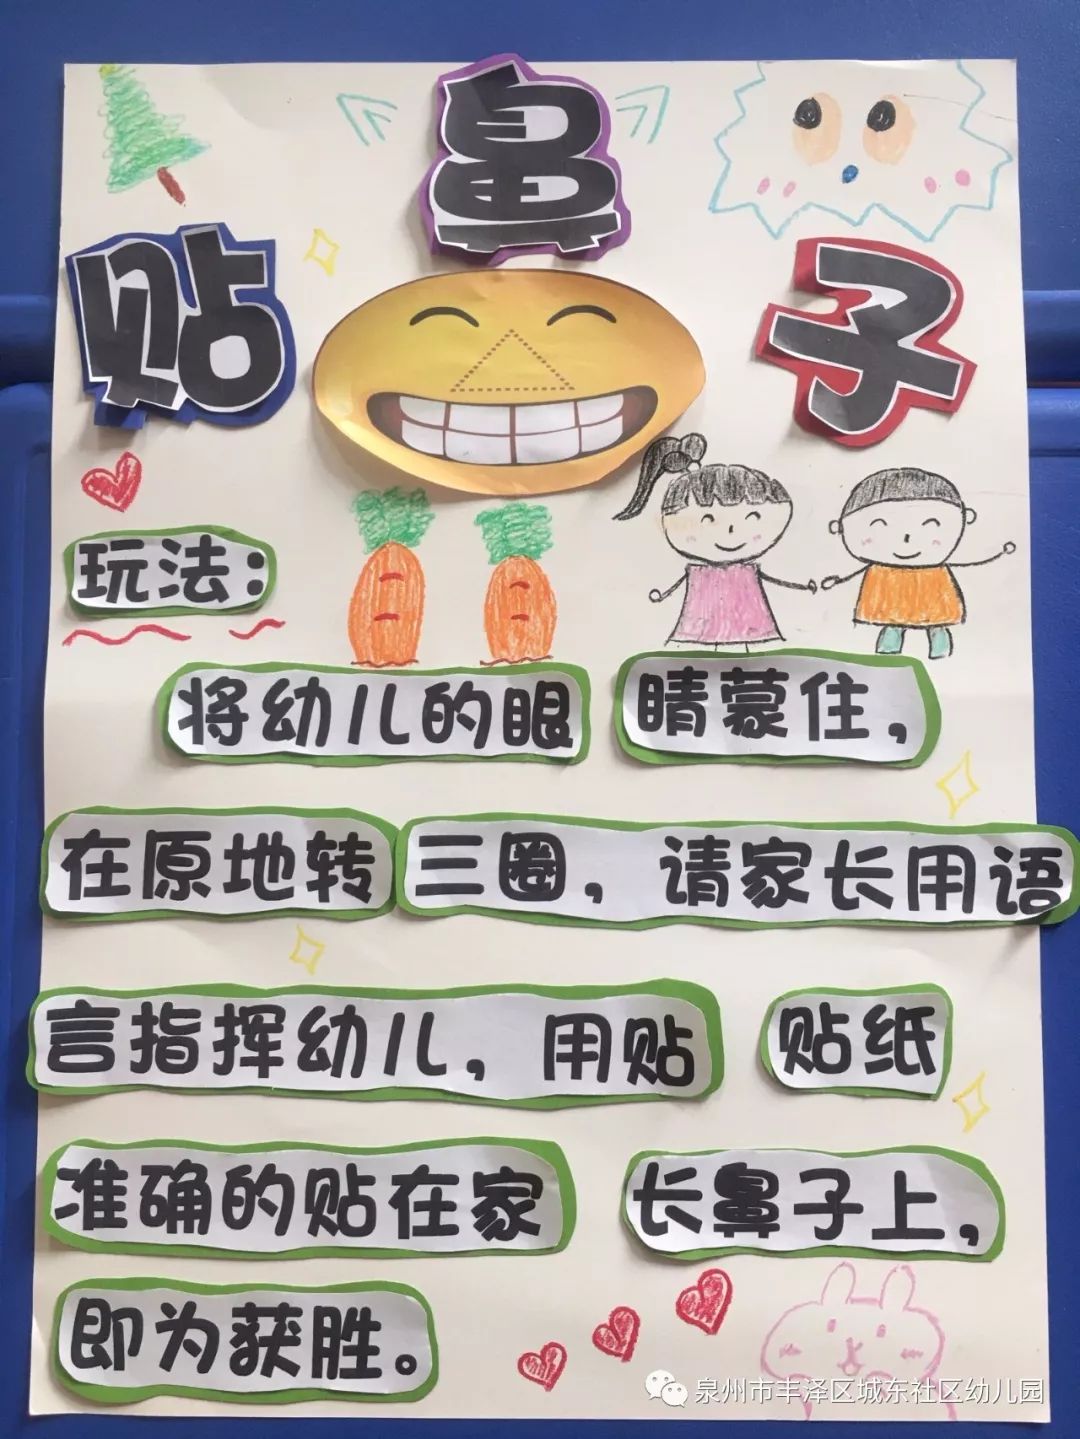 贴鼻子
玩法：
将幼儿的眼睛蒙住，
在原地转三圈，请家长用语
言指挥幼儿，用贴贴纸
准确的贴在家长鼻子上，
即为获胜。
泉州市丰泽区城东社区幼儿园